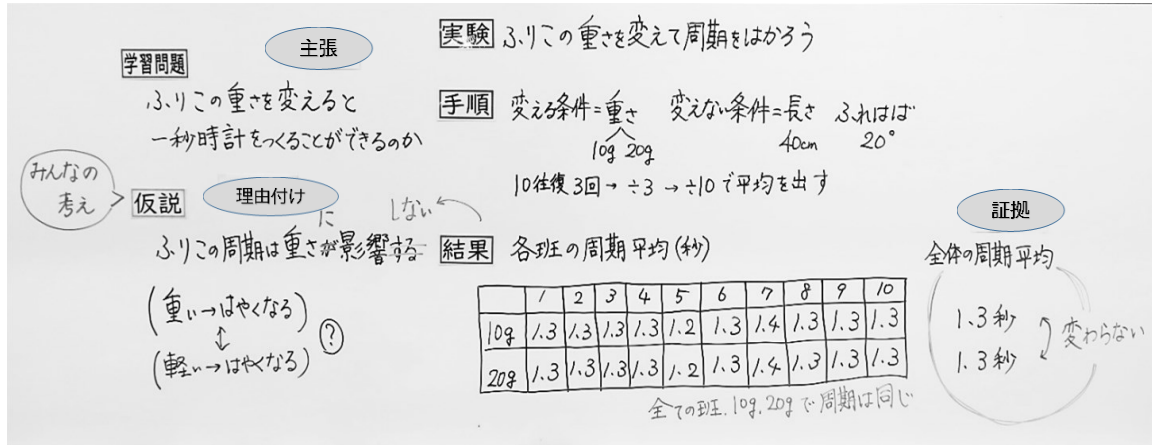 主張
学習問題
ふりこの重さを変えると
一秒時計をつくることができるのか
みんなの
考え
仮説
理由付け
に
しない
ふりこの周期は重さが影響する
(重い→はやくなる)
↕
(軽い→はやくなる)
?
実験 ふりこの重さを変えて周期をはかろう
手順 変える条件=重さ 変えない条件=長さ ふれはば
10g 20g 40cm 20°
10往復3回→÷3→÷10で平均を出す
結果 各班の周期平均(秒)
1 2 3 4 5 6 7 8 9 10
10g 1.3 1.3 1.3 1.3 1.2 1.3 1.4 1.3 1.3 1.3
20g 1.3 1.3 1.3 1.3 1.2 1.3 1.4 1.3 1.3 1.3
全ての班、10g、20gで周期は同じ
証拠
全体の周期平均
1.3秒
1.3秒
変わらない